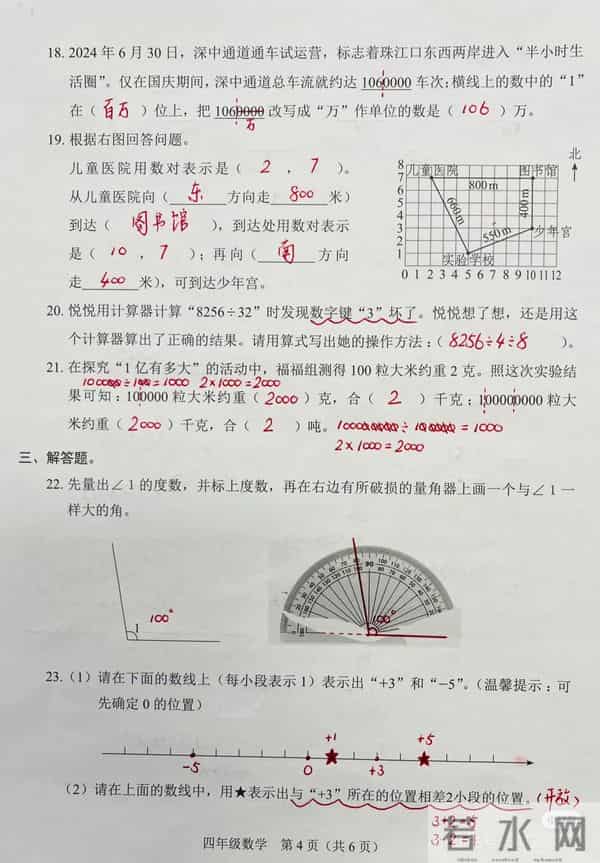 18. 2024 年 6 月 30 日，深中通道通车试运营，标志着珠江口东西两岸进入“半小时生
活圈”。仅在国庆期间，深中通道总车流就约达 1060000 车次；横线上的数中的“1”
在（ 百万 ）位上，把 1060000 改写成“万”作单位的数是（ 106 ）万。
万
19. 根据右图回答问题。
儿童医院用数对表示是（ 2 ，7 ）。
从儿童医院向（ 东 方向走 800 米）
到达（ 图书馆 ），到达处用数对表示
是（ 10 ，7 ）；再向（ 南 方向
走 400 米），可到达少年宫。
北
8
7
6
5
4
3
2
1
儿童医院
图书馆
800 m
660 m
400 m
550 m
少年宫
实验学校
0 1 2 3 4 5 6 7 8 9 10 11 12
20. 悦悦用计算器计算“8256÷32”时发现数字键“3”坏了。悦悦想了想，还是用这
个计算器算出了正确的结果。请用算式写出她的操作方法：（ 8256÷4÷8 ）。
21. 在探究“1 亿有多大”的活动中，福福组测得 100 粒大米约重 2 克。照这次实验结
100000÷100=1000 2×1000=2000
果可知：100000 粒大米约重（ 2000 ）克，合（ 2 ）千克；100000000 粒大
米约重（ 2000 ）千克，合（ 2 ）吨。100000000÷100000=1000
2×1000=2000
三、解答题。
22. 先量出∠1 的度数，并标上度数，再在右边有所破损的量角器上画一个与∠1 一
样大的角。
100°
1
90
100°
23.（1）请在下面的数线上（每小段表示 1）表示出“+3”和“−5”。（温馨提示：可
先确定 0 的位置）
+1
+5
-5
0
+3
（2）请在上面的数线中，用★表示出与“+3”所在的位置相差2小段的位置。（开放）
3+2=5
3-2=1
四年级数学 第 4 页（共 6 页）
若水网